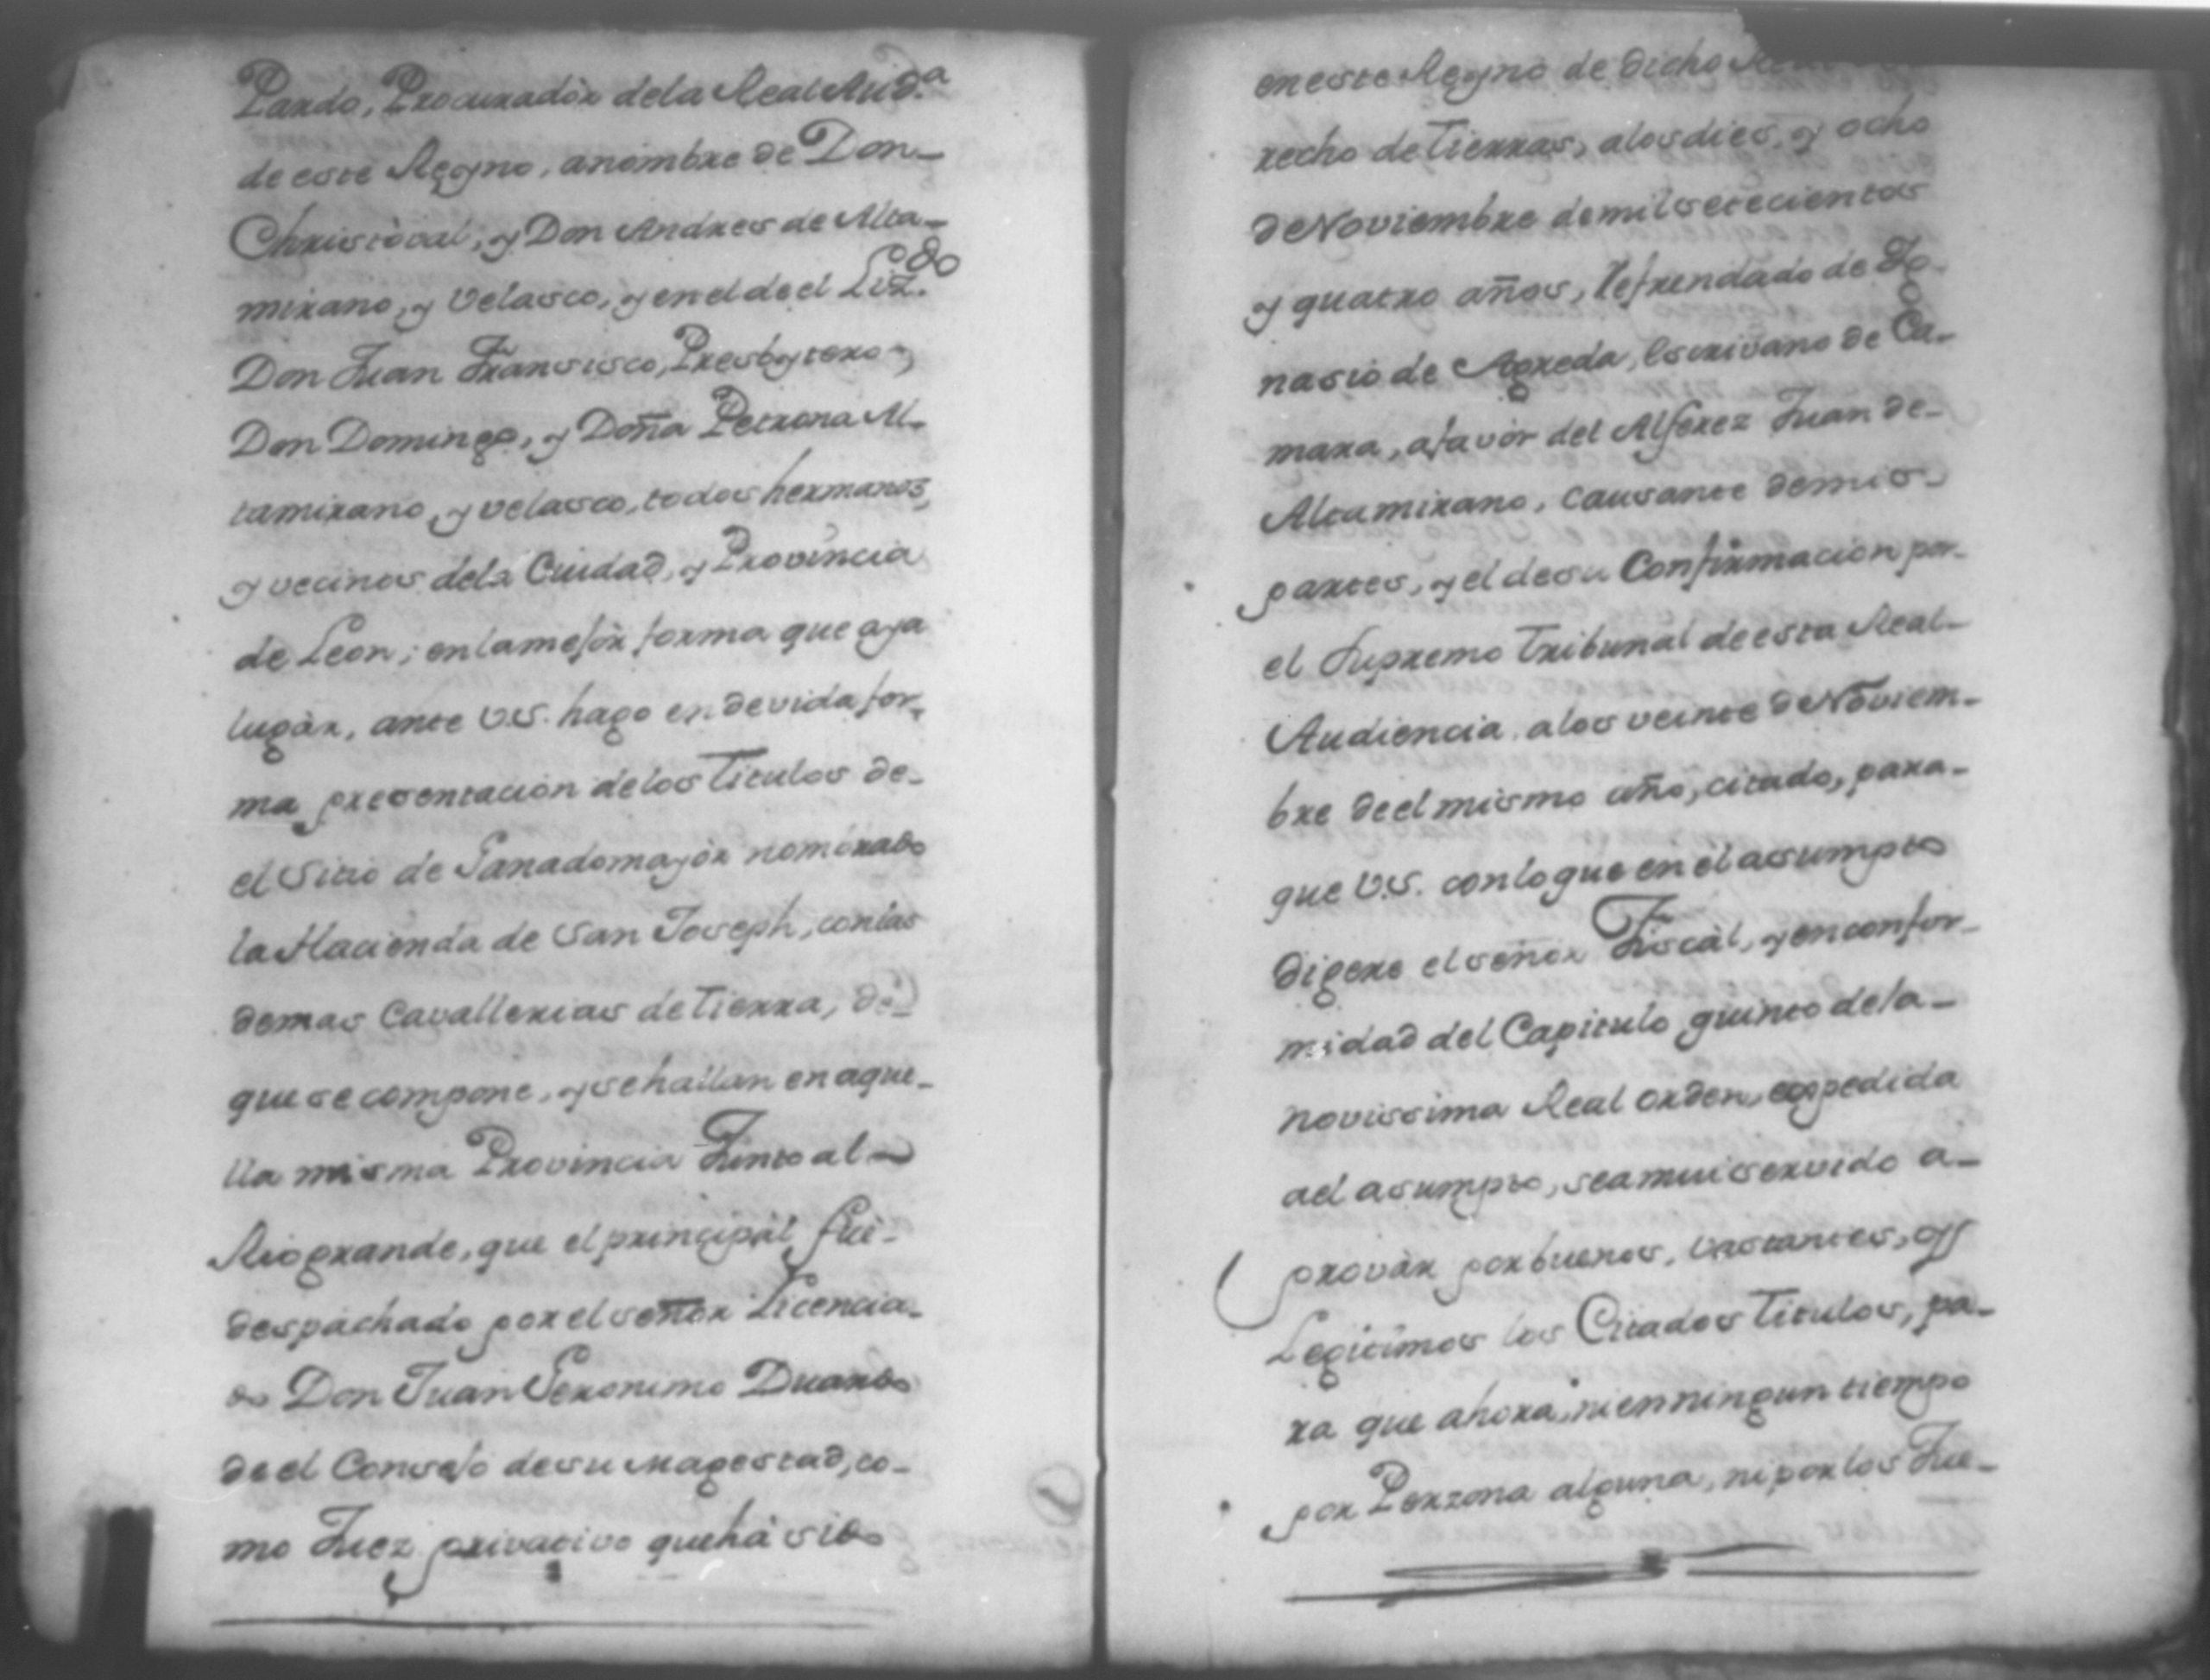 Pardo, Procurador dela Real Aud.a
de este Reyno, a nombre de Don
Christoval, y Don Andres de Alta-
mirano, y Velasco, y en el de el Liz.do
Don Juan Fransisco, Presbytero,
Don Domingo, y Doña Petrona Al-
tamirano, y velasco, todos hermanos,
y vecinos dela Ciudad, y Provincia
de Leon; en la mejor forma que aya
lugàr, ante V.S. hago en devida for-
ma presentacion de los Titulos de-
el Sitio de Ganado mayòr nominado
la Hacienda de San Joseph, con las
demas Cavallerias de Tierra, de
que se compone, y se hallan en aque-
lla misma Provincia Junto al
Rio grande, que el principàl fue-
despachado por el señor Licencia-
do Don Juan Geronimo Duardo
de el Consejo de su Magestad, co-
mo Juez privativo que hà sido
en este Reyno de dicho Real
recho de Tierras, a los dies, y ocho
de Noviembre de mil setecientos
y quatro años, Refrendado de Jo-
nasio de Agreda, Escrivano de Ca-
mara, a favòr del Alferez Juan de-
Altamirano, causante de mis-
partes, y el de su Confirmacion por-
el Supremo Tribunal de esta Real-
Audiencia, a los veinte de Noviem-
bre de el mismo año, citado, para-
que V.S. con lo que en el assumpto
digere el señor Fiscàl, y en confor-
midad del Capitulo quinto de la-
novissima Real orden, expedida
a el asumpto, sea mui servido a-
provàr por buenos, bastantes, y
Legitimos los Citados Titulos, pa-
ra que ahora, ni en ningun tiempo
por Perzona alguna, ni por los Jue-